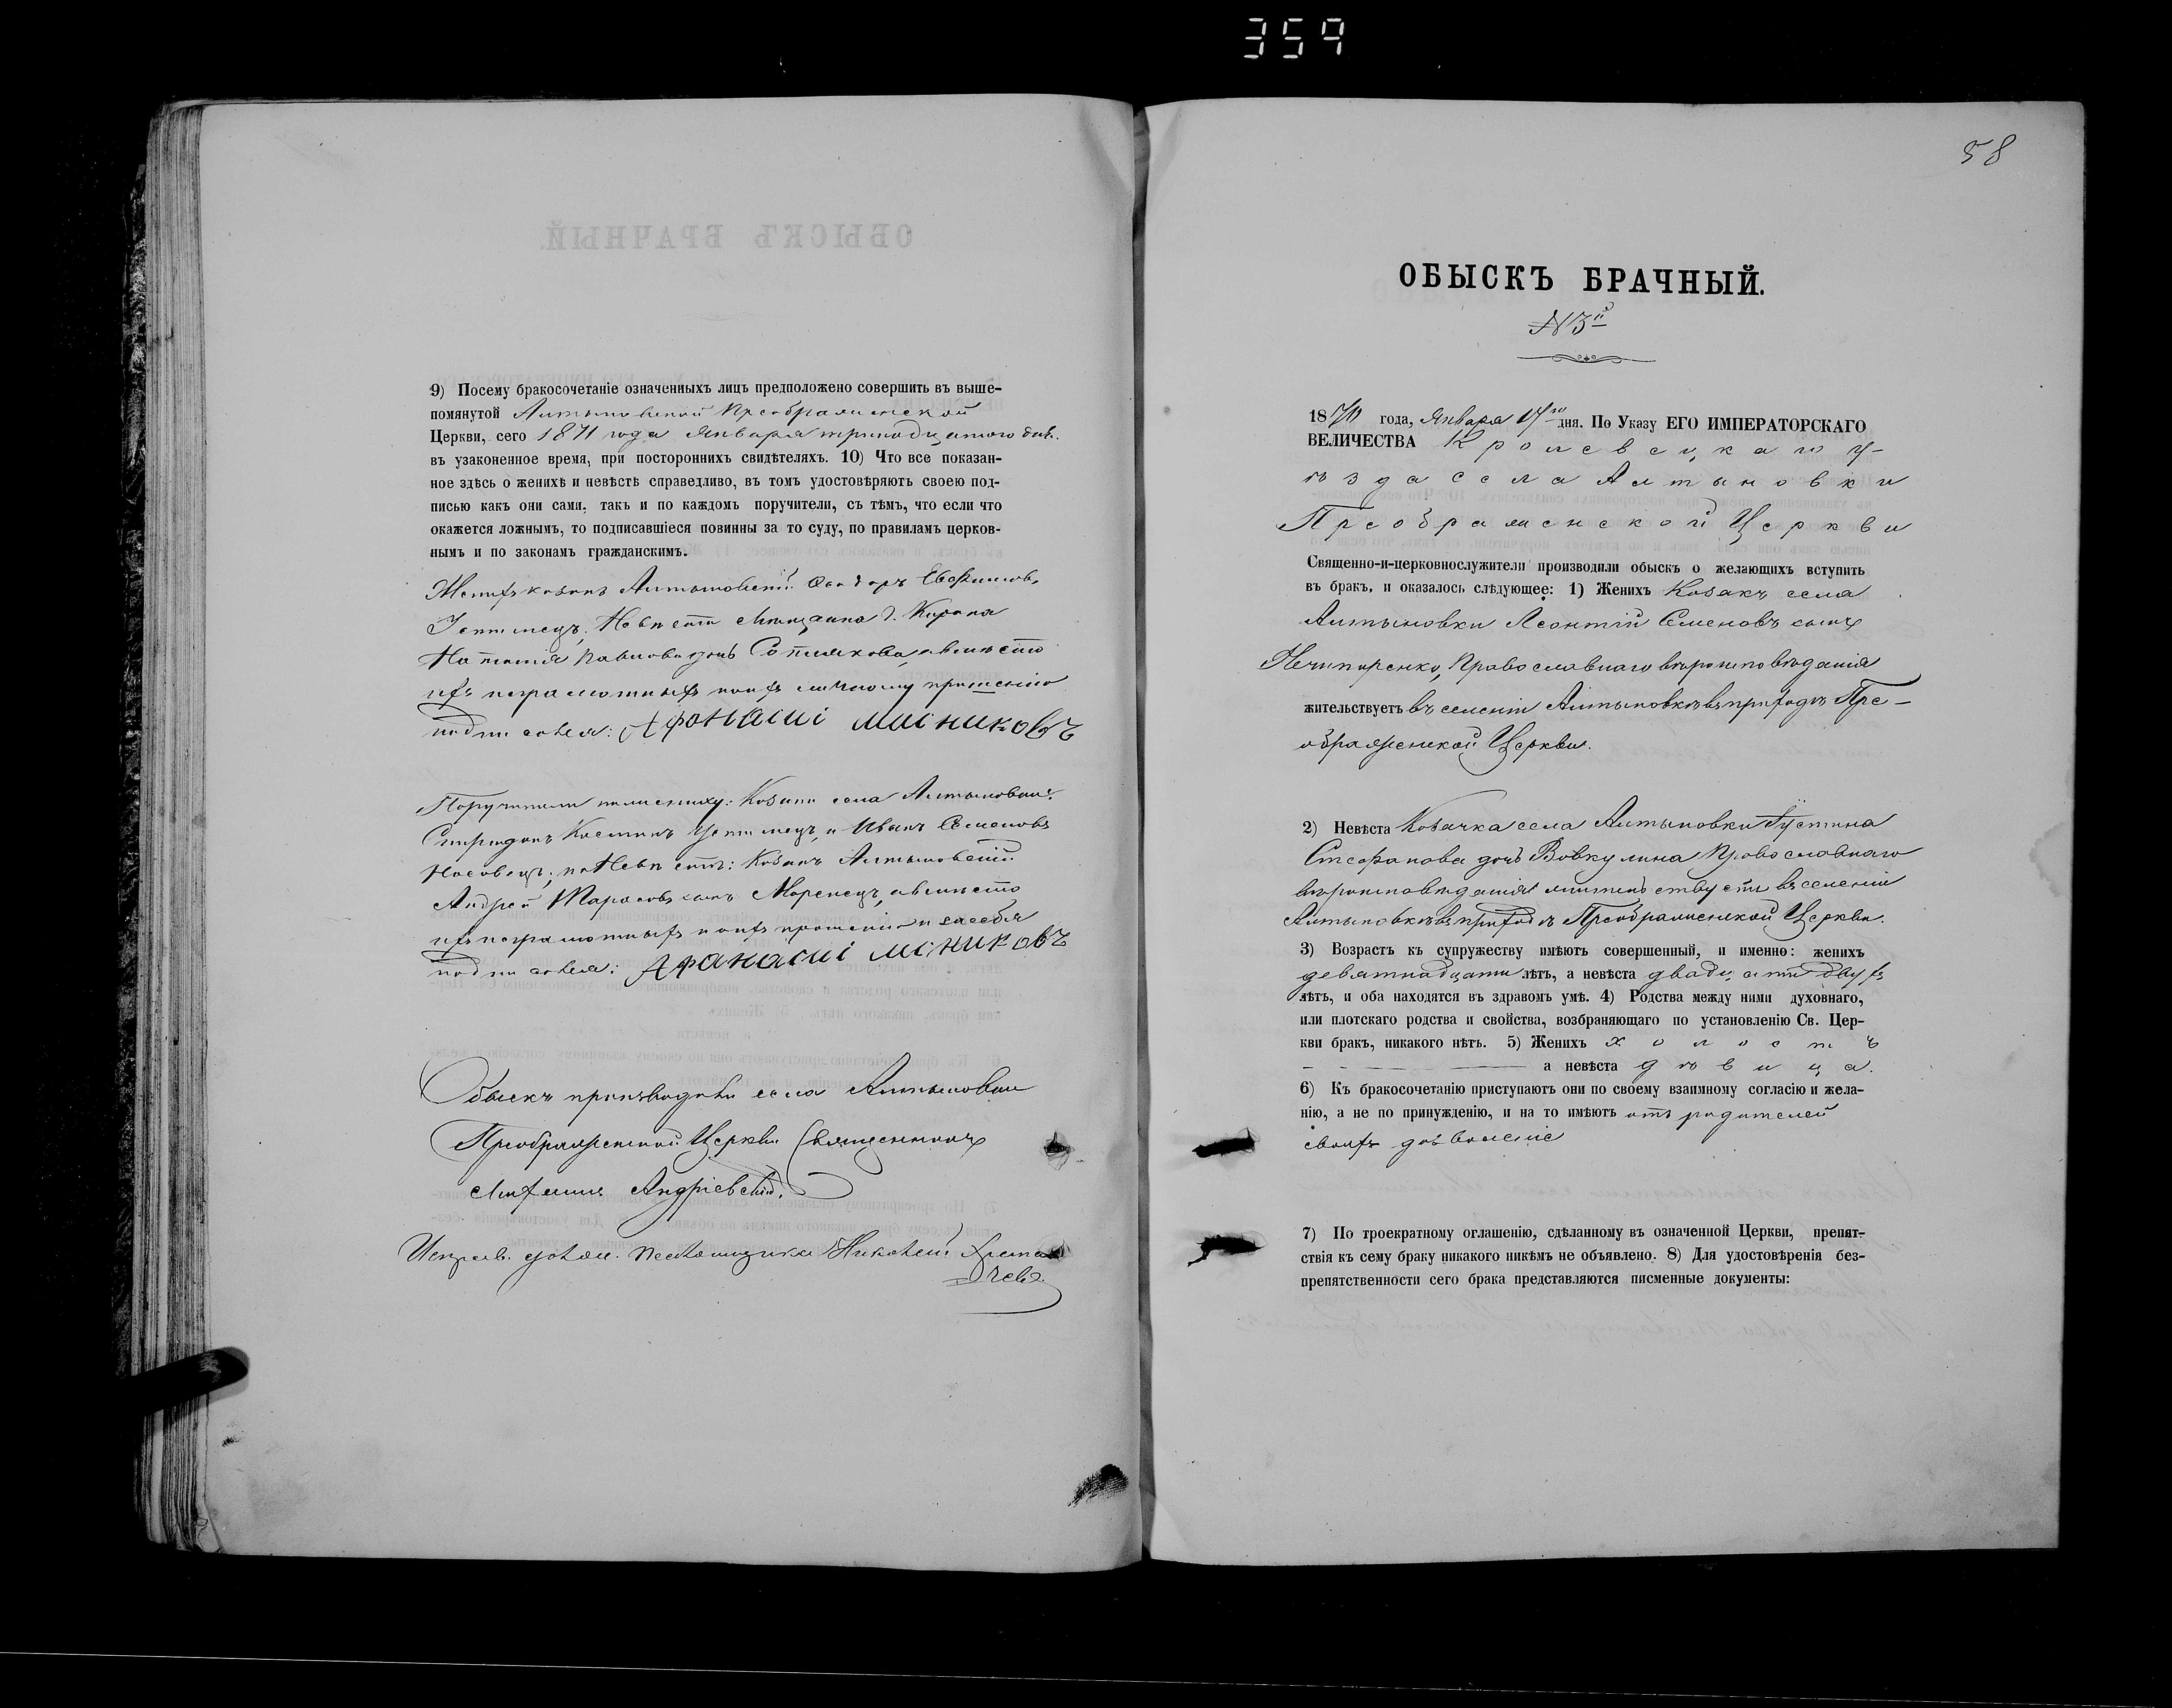 359
9) Посему бракосочетаніе означенныхъ лицъ предположено совершить въ выше-
помянутой Алтыновской Преображенской
Церкви, сего 1871 года Января тринадцатого дня.
въ узаконенное время, при постороннихъ свидѣтеляхъ. 10) Что все показан-
ное здѣсь о женихѣ и невѣстѣ справедливо, въ томъ удостовѣряютъ своею под-
писью какъ они сами, такъ и по каждомъ поручители, съ тѣмъ, что если что
окажется ложнымъ, то подписавшіеся повинны за то суду, по правиламъ церков-
нымъ и по законамъ гражданскимъ.
Женихъ козакъ Алтыновскій Ѳеодоръ Евфимовъ
Невѣста Мѣщанка
Наталія Павлова дочь а вмѣсто
ихъ неграмотныхъ по ихъ личному прошенію
подписался: Афонасиі Мисниковъ
Поручители по женихѣ: Козаки села Алтыновки:
Спиридонъ Косминъ и Иванъ Семеновъ
Носовецъ; по Невѣстѣ: Козакъ Алтыновскій
Андрей Тарасовъ сынъ Моренецъ, а вмѣсто
ихъ неграмотныхъ по ихъ прошенію и за себя
подписался: Афанасиі Мсниковъ
Обыскъ производили села Алтыновки
Преображенской Церкви Священникъ
Андріевскій.
Исправ. должн. Псаломщика Николай
58
ОБЫСКЪ БРАЧНЫЙ.
№ 3й
1871 года, Января 17го дня. По Указу ЕГО ИМПЕРАТОРСКАГО
ВЕЛИЧЕСТВА Кролевецкаго у-
ѣзда села Алтыновки
Преображенской Церкви
Священно-и-церковнослужители производили обыскъ о желающихъ вступить
въ бракъ, и оказалось слѣдующее: 1) Женихъ Козакъ села
Алтыновки Леонтій Семеновъ сынъ
Нечипоренко, Православнаго вѣроисповѣданія
жительствуетъ въ селеніи Алтыновкѣ въ приходѣ Пре-
ображенской Церкви.
2) Невѣста Козачка села Алтыновки Іустина
Стефанова дочь Вовкулина Православнаго
вѣроисповѣданія жительствуетъ въ селеніи
Алтыновкѣ въ приходѣ Преображенской Церкви.
3) Возрастъ къ супружеству имѣютъ совершенный, и именно: женихъ
девятнадцати лѣтъ, а невѣста двадцати двухъ
лѣтъ, и оба находятся въ здравомъ умѣ. 4) Родства между ними духовнаго,
или плотскаго родства и свойства, возбраняющаго по установленію Св. Цер-
кви бракъ, никакого нѣтъ. 5) Женихъ холостъ
а невѣста дѣвица.
6) Къ бракосочетанію приступаютъ они по своему взаимному согласію и жела-
нію, а не по принужденію, и на то имѣютъ отъ родителей
своихъ дозволеніе
7) По троекратному оглашенію, сдѣланному въ означенной Церкви, препят-
ствія къ сему браку никакого никѣмъ не объявлено. 8) Для удостовѣренія без-
препятственности сего брака представляются писменные документы: